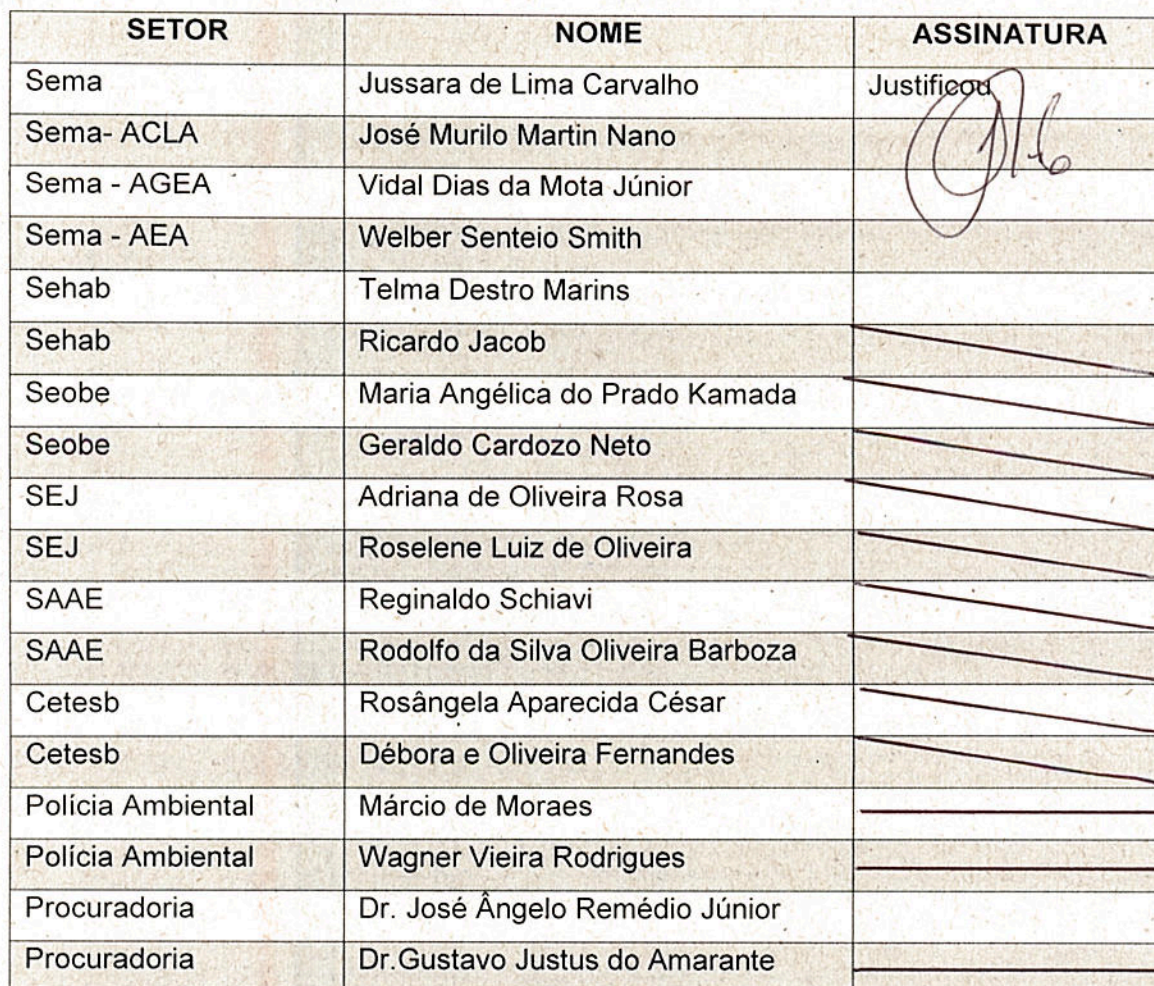 SETOR NOME ASSINATURA
Sema Jussara de Lima Carvalho Justificou
Sema- ACLA José Murilo Martin Nano
Sema - AGEA Vidal Dias da Mota Júnior
Sema - AEA Welber Senteio Smith
Sehab Telma Destro Marins
Sehab Ricardo Jacob
Seobe Maria Angélica do Prado Kamada
Seobe Geraldo Cardozo Neto
SEJ Adriana de Oliveira Rosa
SEJ Roselene Luiz de Oliveira
SAAE Reginaldo Schiavi
SAAE Rodolfo da Silva Oliveira Barboza
Cetesb Rosângela Aparecida César
Cetesb Débora e Oliveira Fernandes
Polícia Ambiental Márcio de Moraes
Polícia Ambiental Wagner Vieira Rodrigues
Procuradoria Dr. José Ângelo Remédio Júnior
Procuradoria Dr.Gustavo Justus do Amarante